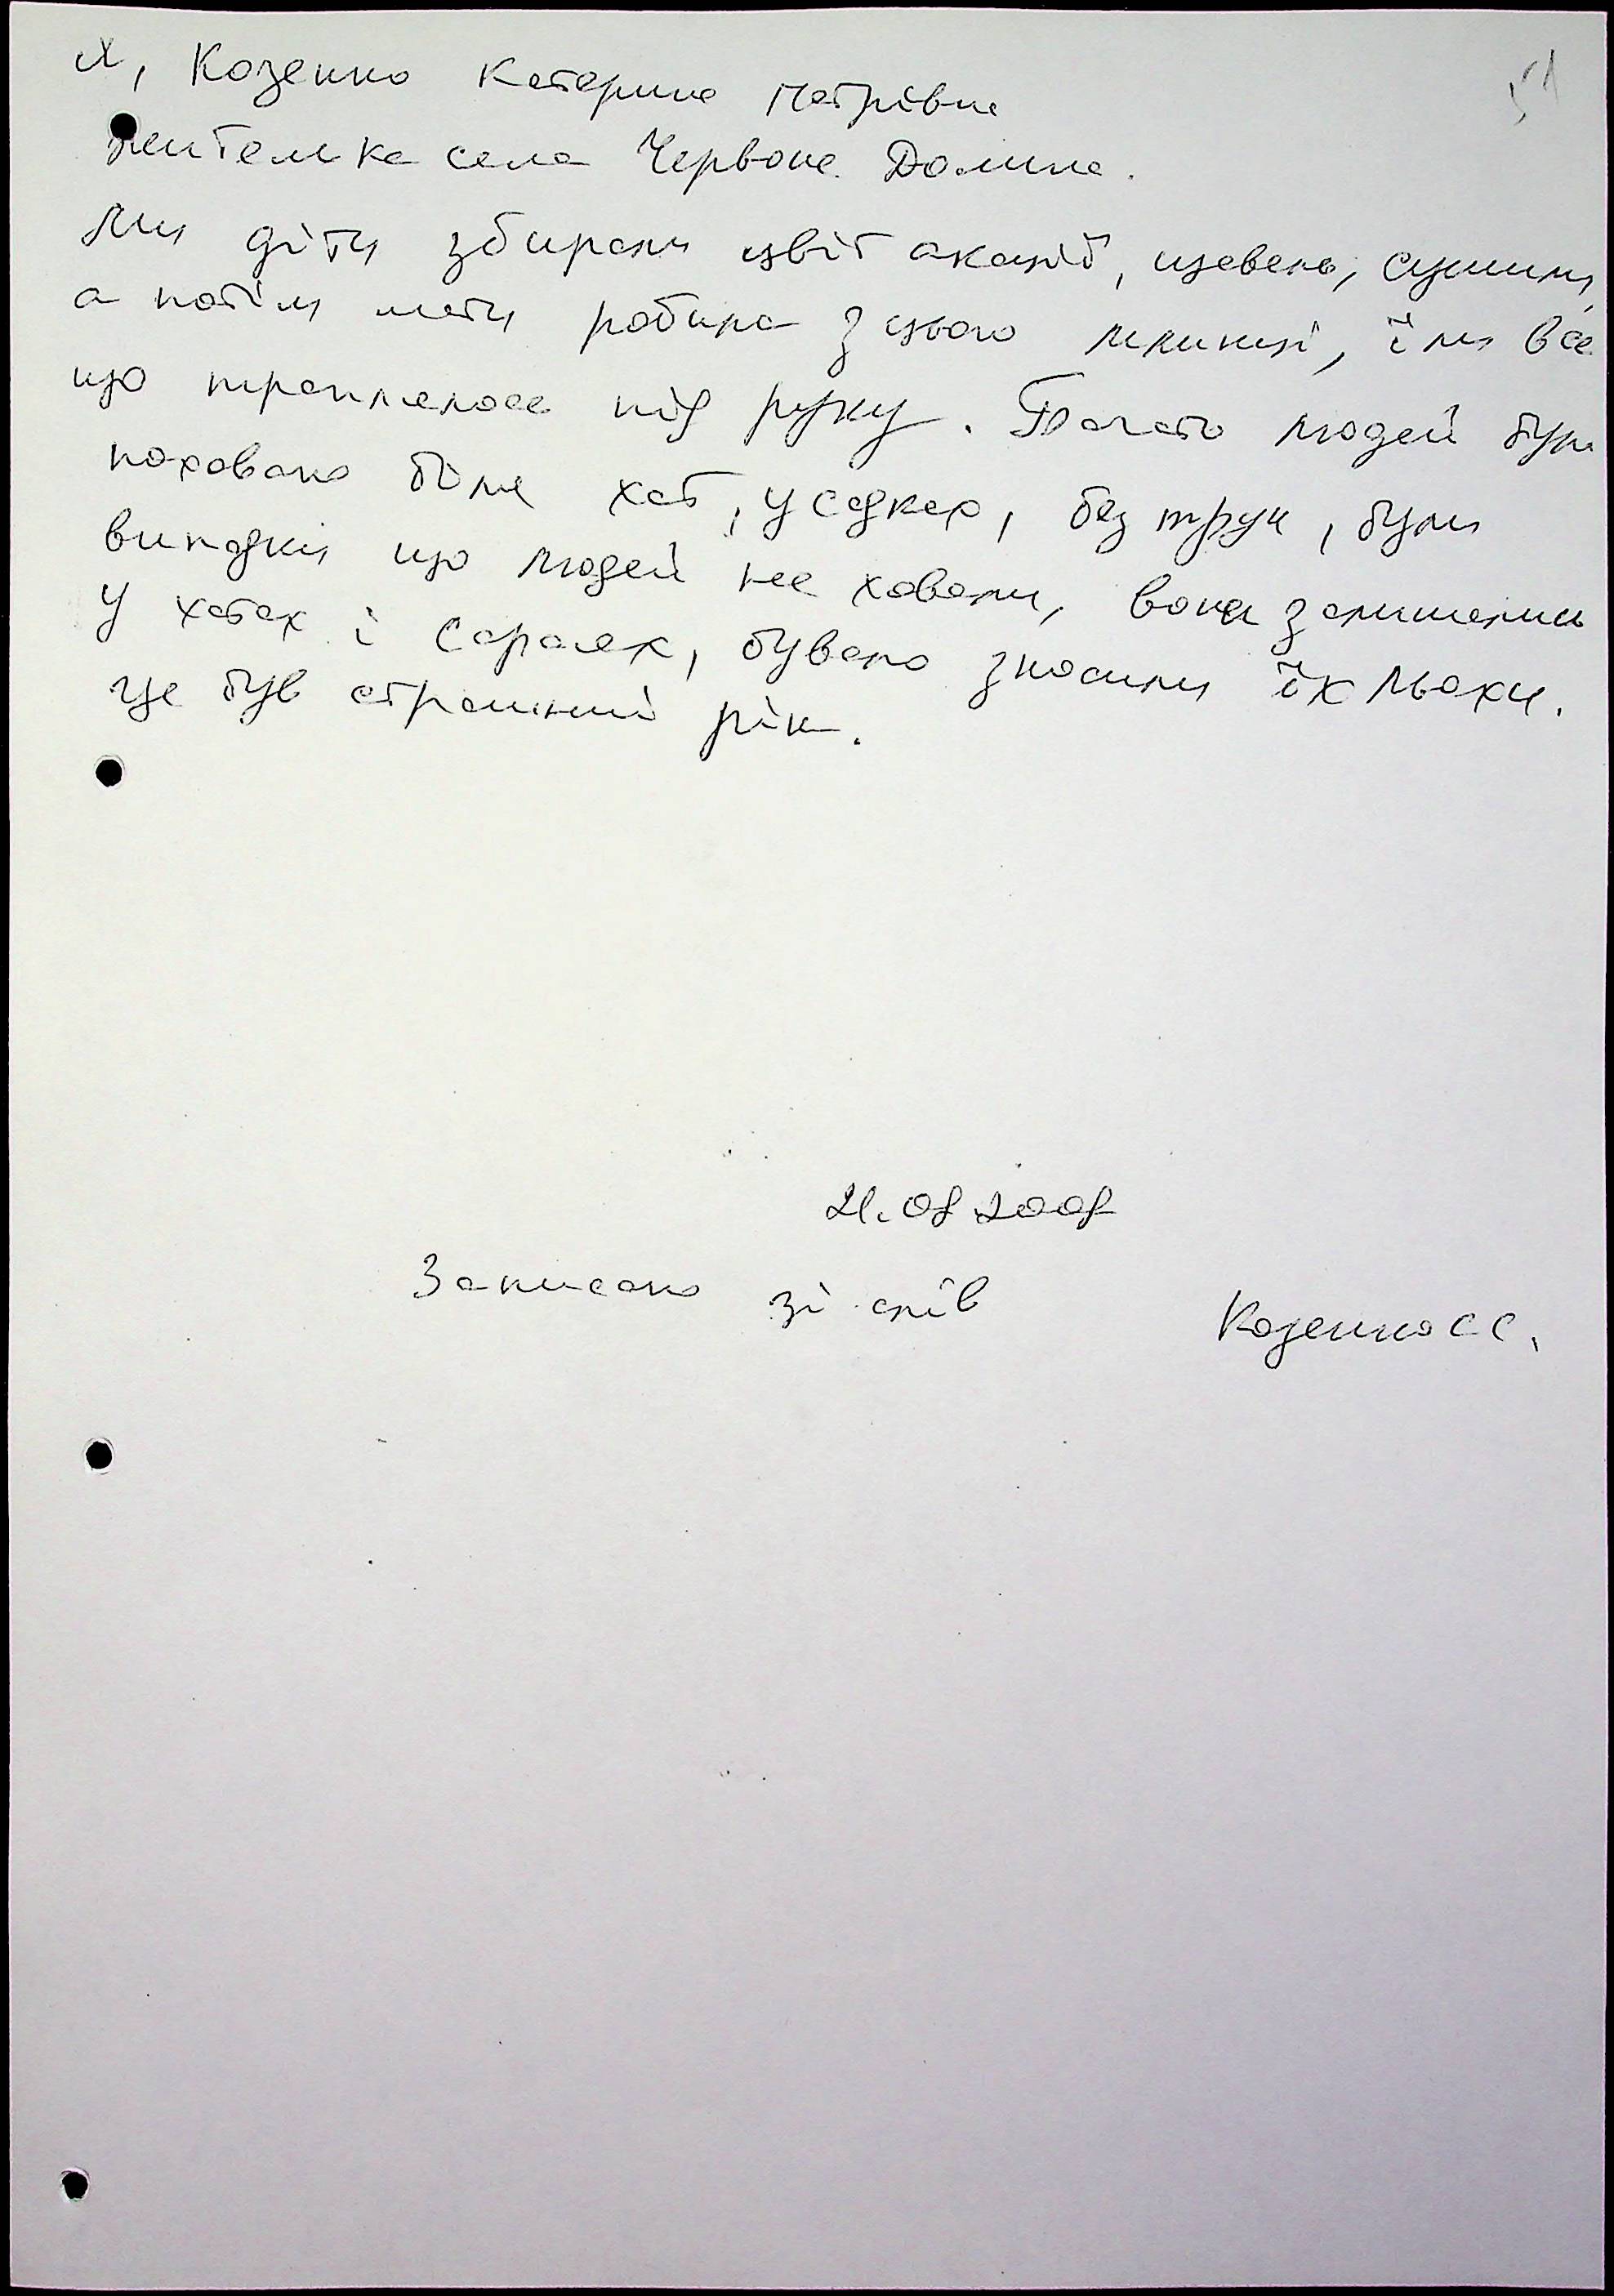 51
Я, Козенко Катерина Петрівна
жителька села Червона Долина.
Ми діти збирали цвіт акації, щевель, сушили,
а потім мати робила з цього млинці, їли все
що траплялося під руку. Багато людей були
поховано біля хат, у садках, без трун, були
випадки що людей не ховали, вони залишались
у хатах і сараях, бувало зносили їх льохи.
Це був страшний рік.
21.08.2008
Записано зі слів
Козенко С С.